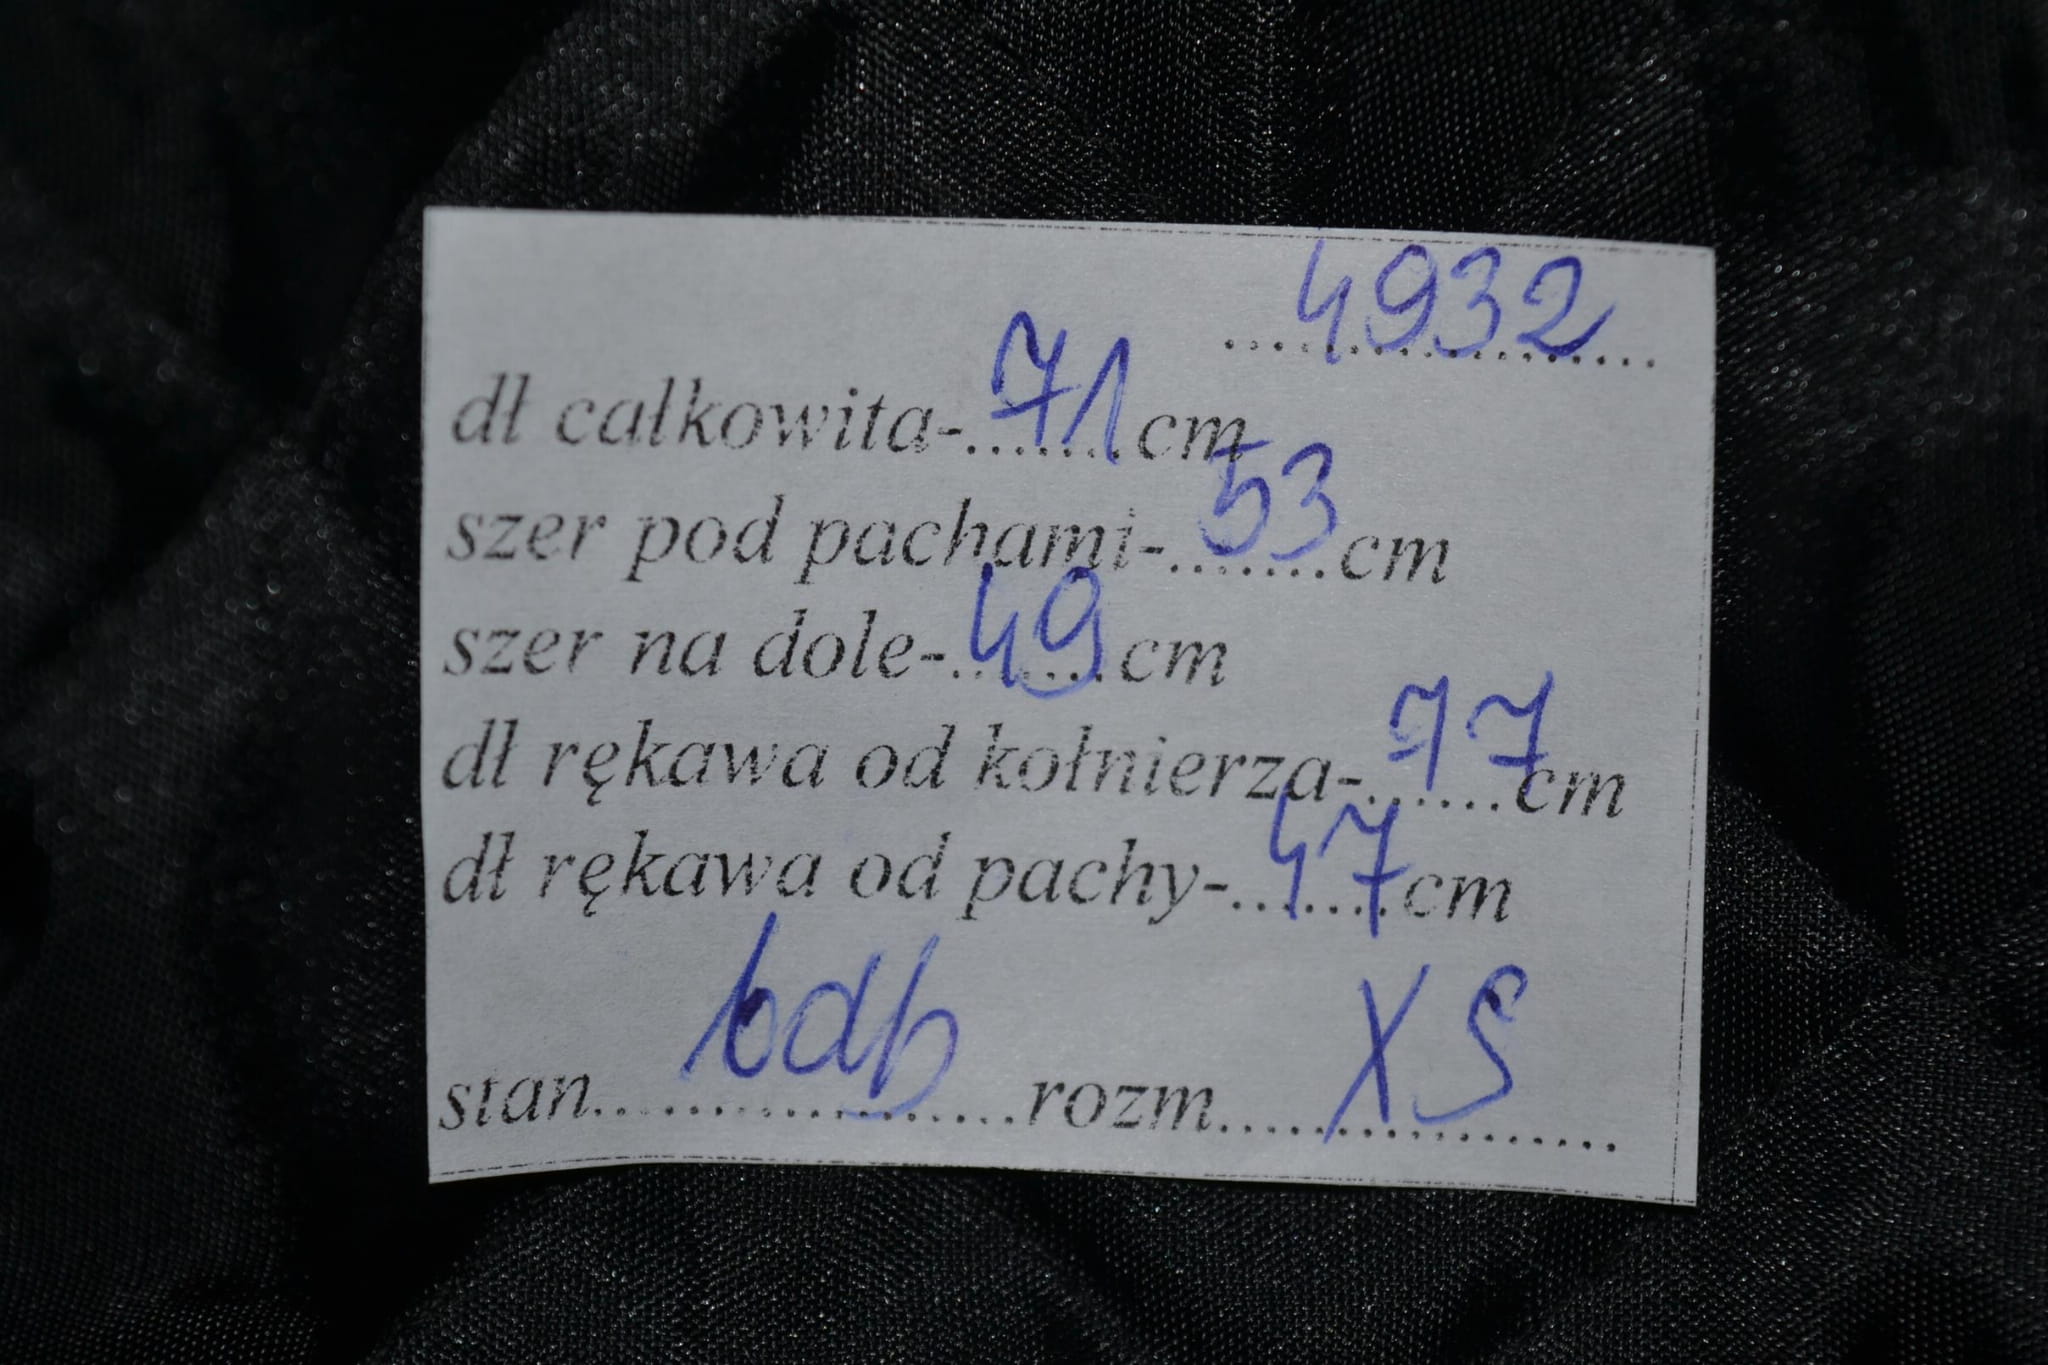 4932
dł całkowita-71cm
szer pod pachami-53cm
szer na dole-49cm
dł rękawa od kołnierza-77cm
dł rękawa od pachy-47cm
stan bdb rozm XS